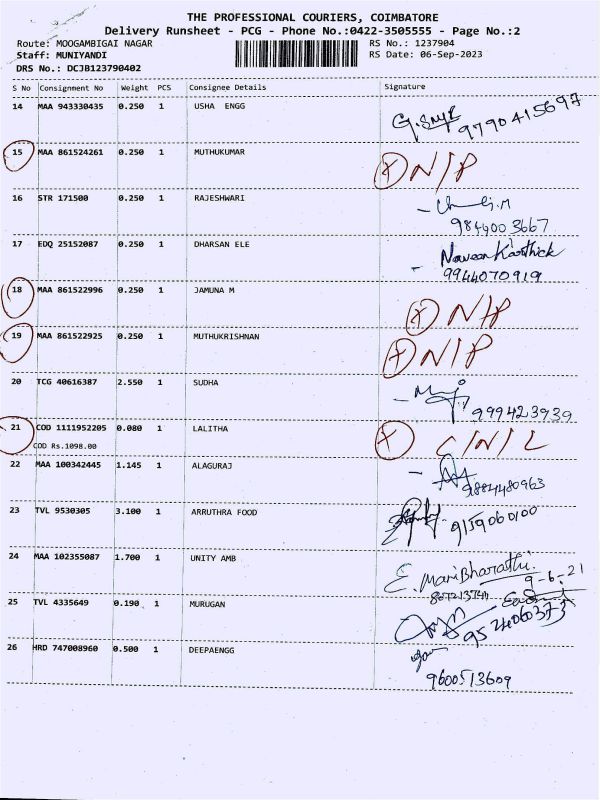 THE PROFESSIONAL COURIERS, COIMBATORE
Delivery Runsheet - PCG - Phone No.:0422-3505555 - Page No.:2
Route: MOOGAMBIGAI NAGAR RS No.: 1237904
Staff: MUNIYANDI RS Date: 06-Sep-2023
DRS No.: DCJB123790402
S No Consignment No Weight PCS Consignee Details Signature
14 MAA 943330435 0.250 1 USHA ENGG 9790415697
15 MAA 861524261 0.250 1 MUTHUKUMAR X N/P
16 STR 171500 0.250 1 RAJESHWARI
9844003667
17 EDQ 25152087 0.250 1 DHARSAN ELE Naveen Karthick
9944070919
18 MAA 861522996 0.250 1 JAMUNA M X
19 MAA 861522925 0.250 1 MUTHUKRISHNAN X N/P
20 TCG 40616387 2.550 1 SUDHA
999423939
21 COD 1111952205 0.080 1 LALITHA X C/N/L
COD Rs.1098.00
22 MAA 100342445 1.145 1 ALAGURAJ
9884480963
23 TVL 9530305 3.100 1 ARRUTHRA FOOD 9159060100
24 MAA 102355087 1.700 1 UNITY AMB E. MariBharathi.
9-6-21
25 TVL 4335649 0.190 1 MURUGAN
26 HRD 747008960 0.500 1 DEEPAENGG
9600513609